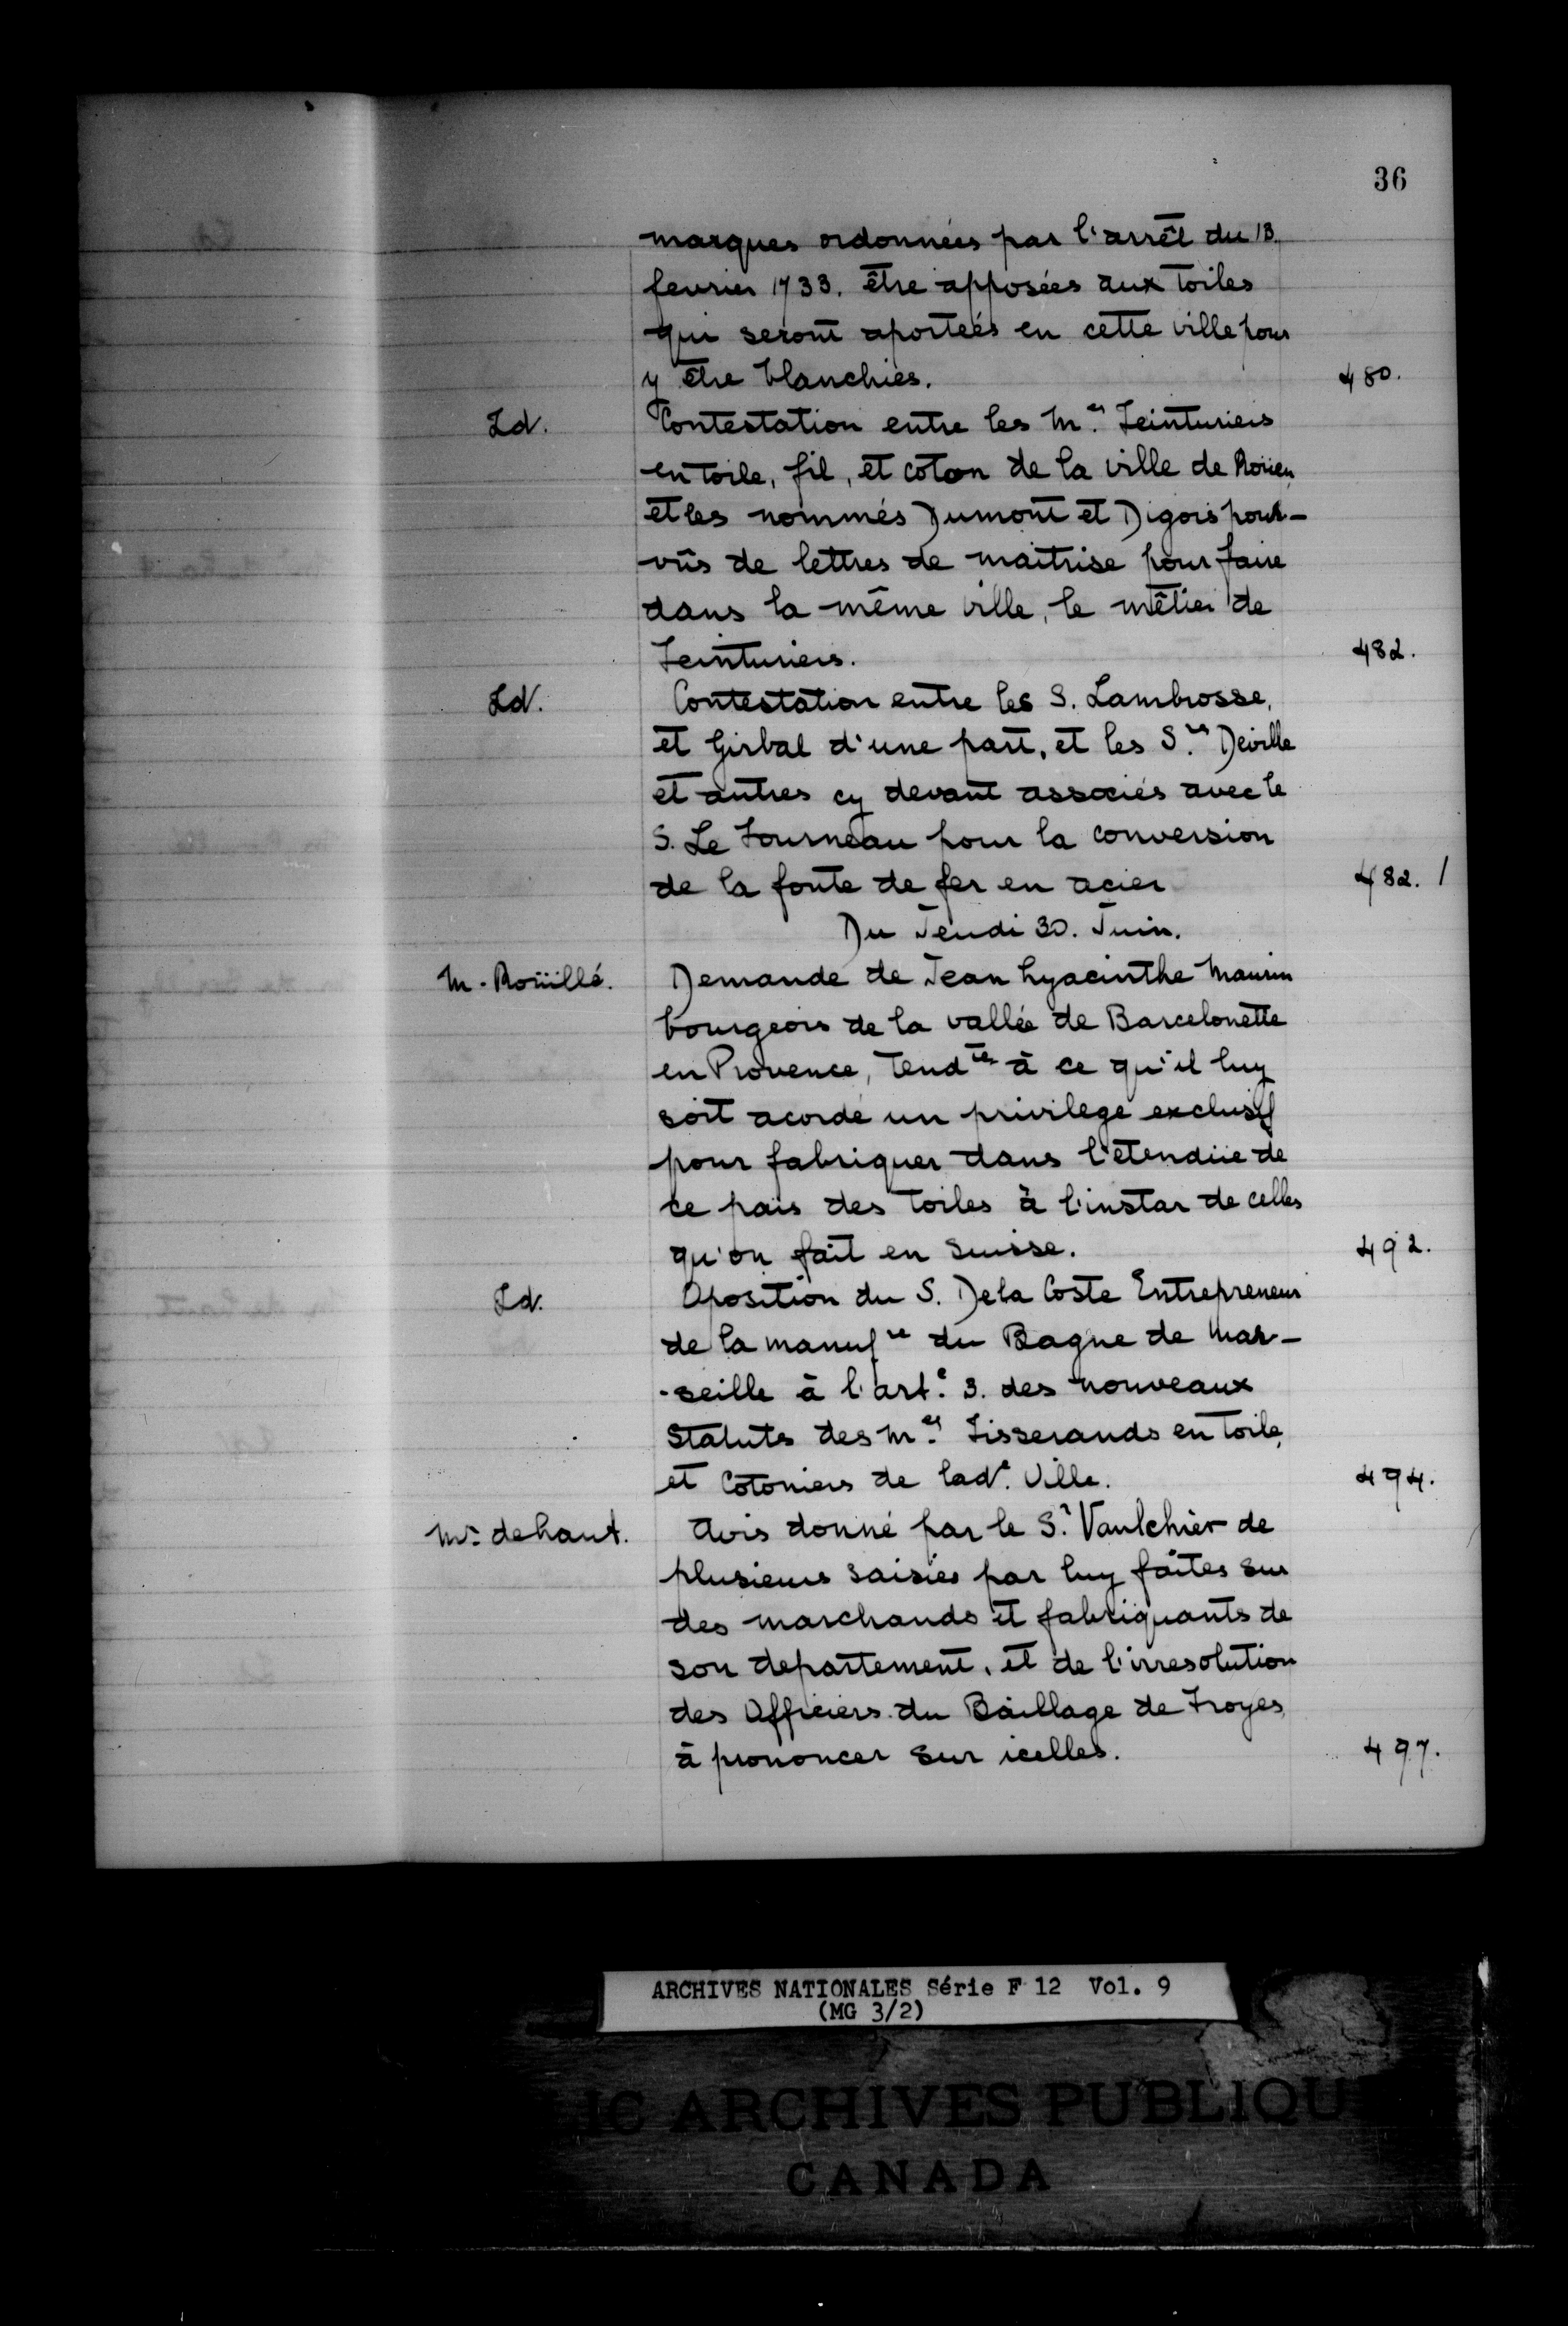 36
marques ordonnées par l'arrêt du 13.
fevrier 1733. être apposées aux toiles
qui seront aporteés en cette ville pour
y être blanchies. 480.
Id. Contestation entre les M.es Teinturiers
en toile, fil, et coton de la ville de Roüen
et les nommés Dumont et Digois pour-
vûs de lettres de maitrise pour faire
dans la même ville, le mêtier de
Teinturiers. 482.
Id. Contestation entre les S. Lambrosse,
et Girbal d'une part, et les S.rs Deville
et autres cy devant associés avec le
S. Le Tourneau pour la conversion
de la fonte de fer en acier 482. /
Du Jeudi 30. Juin.
M. Roüillé. Demande de Jean hyacinthe Maurin
bourgeois de la vallée de Barcelonette
en Provence, tend.te à ce qu'il luy
soit acordé un privilege exclusif
pour fabriquer dans l'étendüe de
ce païs des toiles à l'instar de celles
qu'on fait en Suisse. 492.
Id. Oposition du S. De la Coste Entrepreneur
de la manuf.re du Bagne de Mar-
-seille à l'art.e 3. des nouveaux
Statuts des M.es Tisserands en toile,
et Cotoniers de lad.e Ville. 494.
Mr. dehaut. Avis donné par le S.r Vaulchier de
plusieurs saisies par luy faites sur
des marchands et fabriquants de
son departement, et de l'irresolution
des Officiers du Baillage de Troyes
à prononcer sur icelles. 497.
ARCHIVES NATIONALES Série F 12 Vol. 9
(MG 3/2)
LIC ARCHIVES PUBLIQU
CANADA